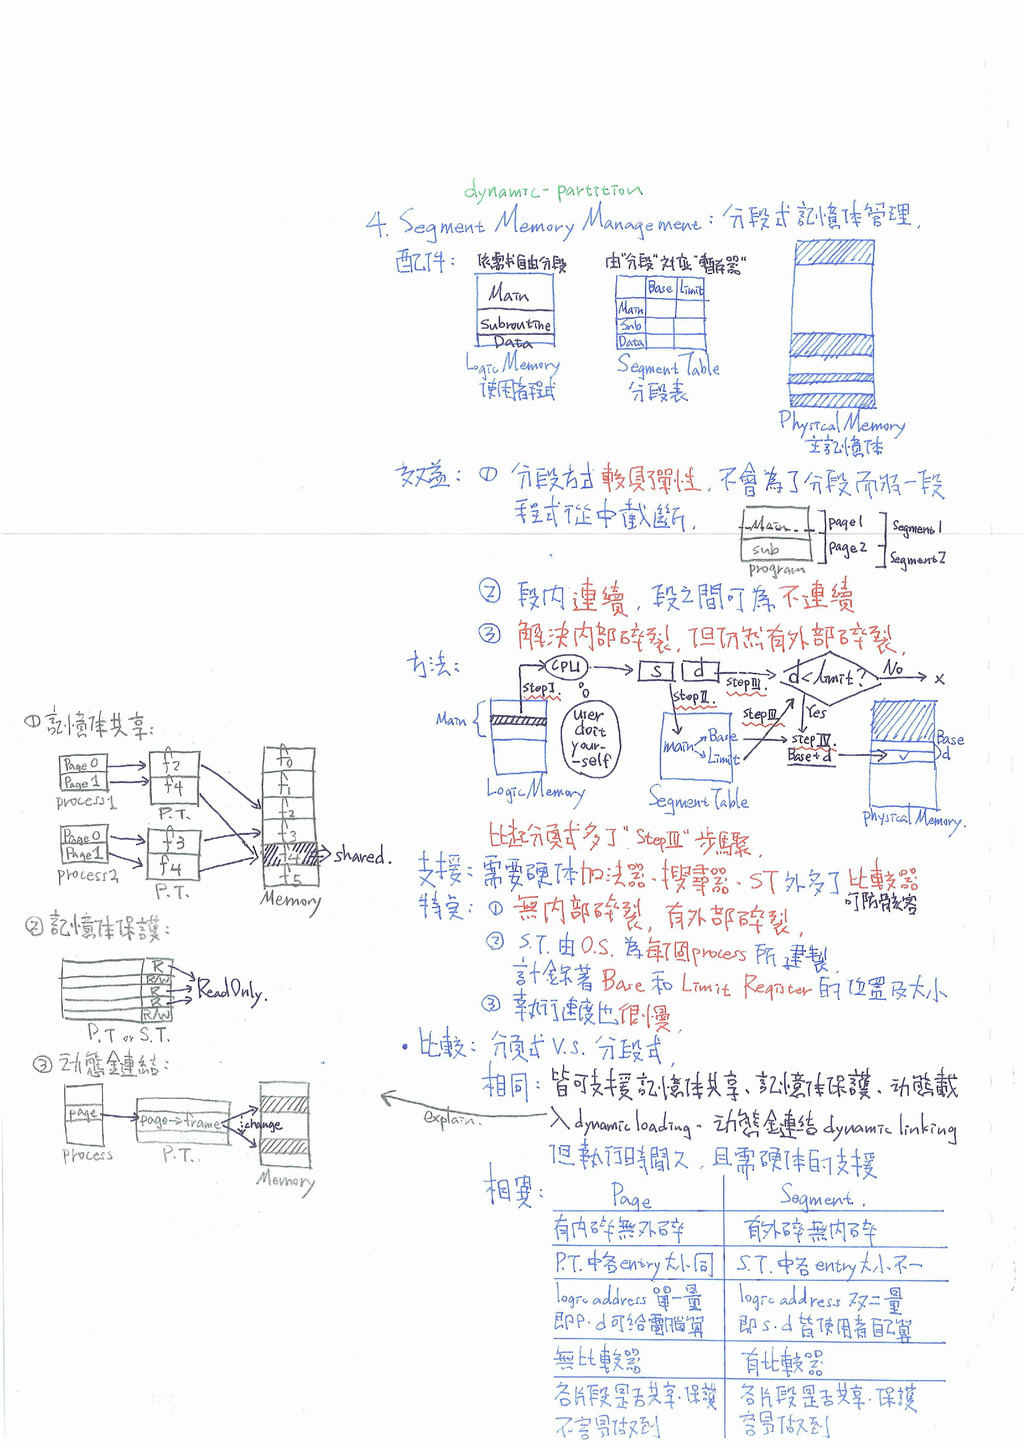 dynamic-partition
4. Segment Memory Management: 分段式記憶体管理.
配件: 依需求自由分段 由"分段"对应"暫存器"
Main
Subroutine
Data
Logic Memory
使用者程式
Base Limit
Main
Sub
Data
Segment Table
分段表
Physical Memory
主記憶体
效益: ① 分段方式較具彈性, 不會為了分段而將一段
程式從中截斷.
Main
sub
program
page1
page2
Segment1
Segment2
② 段內連續, 段之間可為不連續
③ 解決內部碎裂, 但仍然有外部碎裂.
方法:
CPU
S d
d<limit?
No
x
Yes
step I.
step II.
step III.
step III
step IV
Base+d
Main
user
do it
your-
-self
main
Base
Limit
Base
d
Logic Memory
Segment Table
physical Memory.
比起分頁式多了"Step III"步驟.
支援: 需要硬体加法器、搜尋器、ST外多了比較器
可防駭客
特点: ① 無內部碎裂, 有外部碎裂,
② S.T.由O.S.為每個process所建製,
計錄著Base和Limit Register的位置及大小
③ 執行速度也很慢,
• 比較: 分頁式 V.S. 分段式,
相同: 皆可支援記憶体共享、記憶体保護、动態載
入dynamic loading、动態鏈結dynamic linking
但執行時間久, 且需硬体的支援
explain.
相異:
Page Segment.
有內碎無外碎 有外碎無內碎
P.T.中各entry大小同 S.T.中各entry大小不一
logic address單一量 logic address 为二量
即P.d可給電腦算 即s.d皆使用者自己算
無比較器 有比較器
各片段是否共享、保護 各片段是否共享、保護
不容易做到 容易做到
① 記憶体共享:
Page 0
Page 1
process1
f2
f4
P.T.
Page 0
Page 1
process2
f3
f4
P.T.
f0
f1
f2
f3
f4
f5
shared.
Memory
② 記憶体保護:
R
R/W
R
R
R/W
Read Only.
P.T or S.T.
③ 动態鏈結:
page
process
page→frame
P.T.
change
Memory